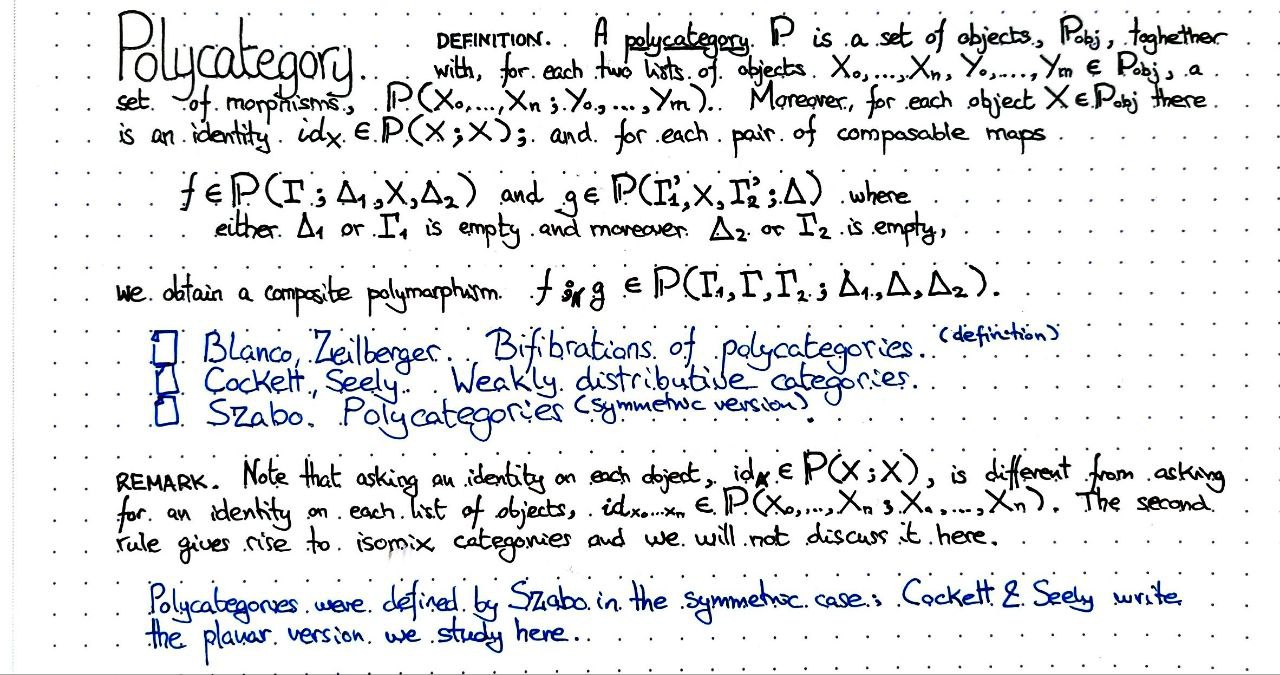 Polycategory. DEFINITION. A polycategory P is a set of objects, P_obj, toghether
with, for each two lists of objects X₀,...,Xₙ, Y₀,...,Yₘ ∈ P_obj, a
set of morphisms, P(X₀,...,Xₙ; Y₀,...,Yₘ). Moreover, for each object X ∈ P_obj there
is an identity id_X ∈ P(X; X); and for each pair of composable maps
f ∈ P(Γ; Δ₁, X, Δ₂) and g ∈ P(Γ₁', X, Γ₂'; Δ) where
either Δ₁ or Γ₁ is empty and moreover Δ₂ or Γ₂ is empty,
we obtain a composite polymorphism f ⨾_X g ∈ P(Γ₁, Γ, Γ₂; Δ₁, Δ, Δ₂).
Blanco, Zeilberger. Bifibrations of polycategories. (definition)
Cockett, Seely. Weakly distributive categories.
Szabo. Polycategories (symmetric version).
REMARK. Note that asking an identity on each object, id_X ∈ P(X; X), is different from asking
for an identity on each list of objects, id_X₀...Xₙ ∈ P(X₀,...,Xₙ; X₀,...,Xₙ). The second
rule gives rise to isomix categories and we will not discuss it here.
Polycategories were defined by Szabo in the symmetric case; Cockett & Seely write
the planar version we study here.